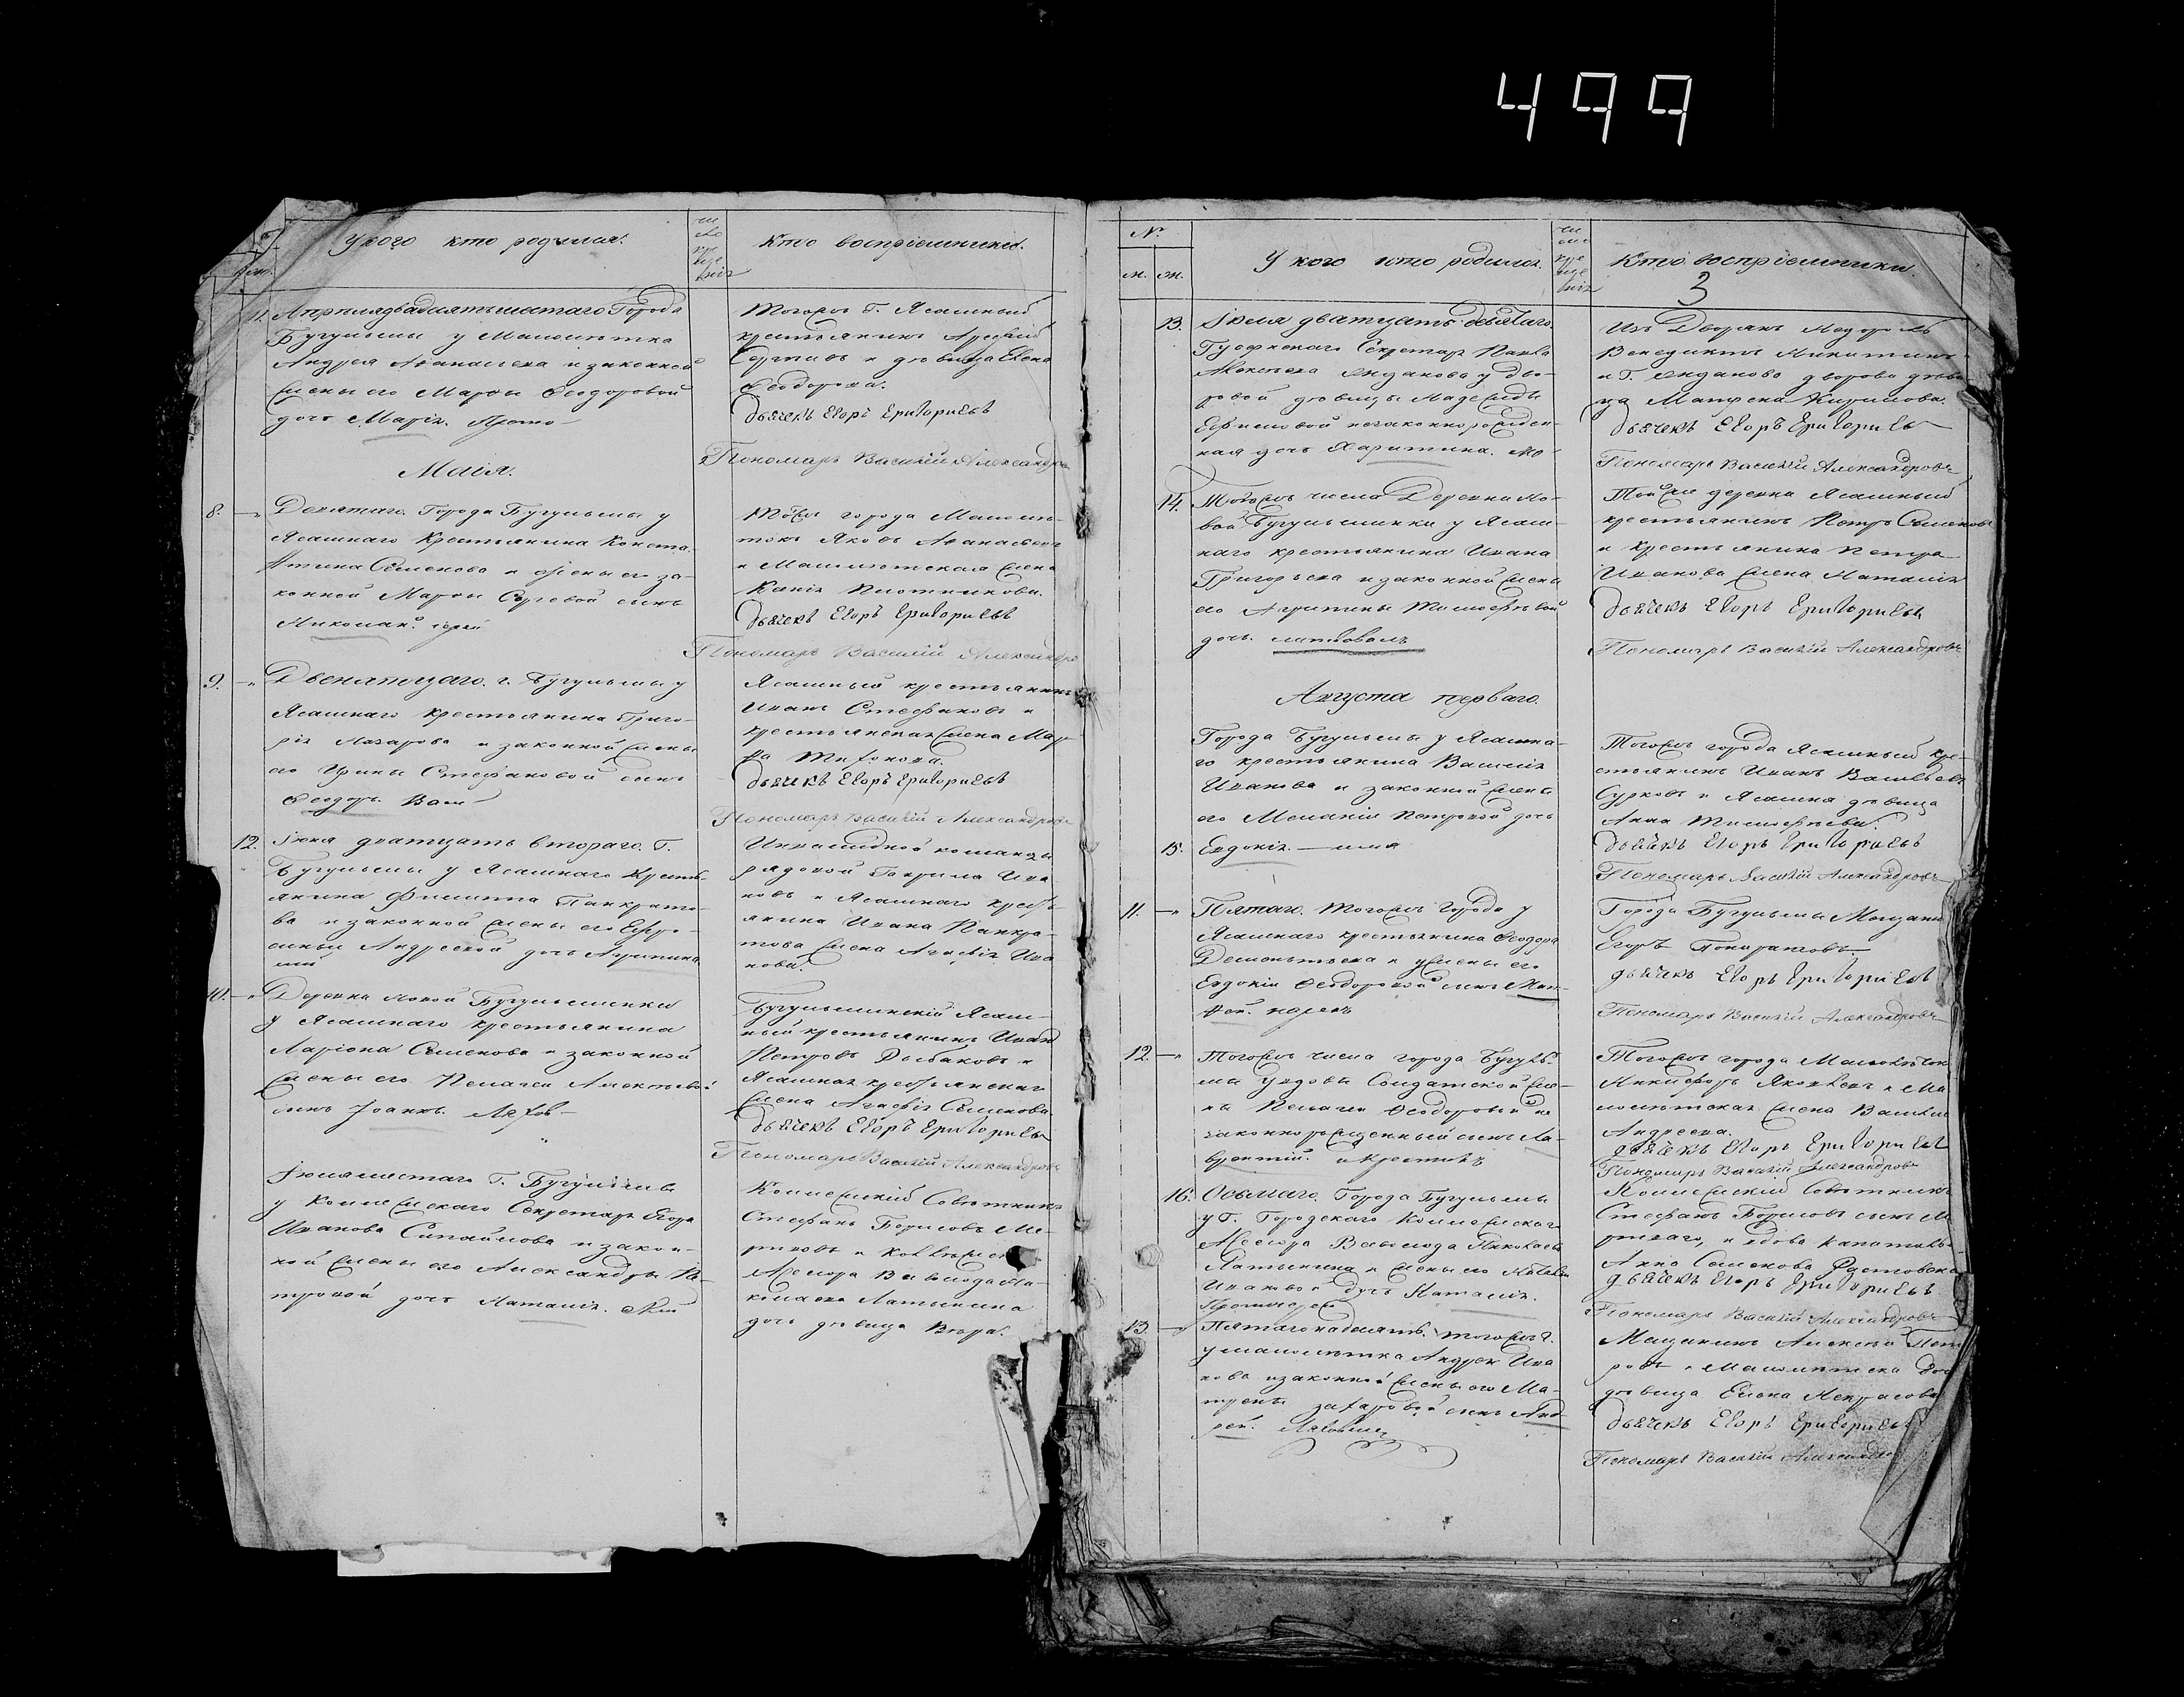 499
У кого кто родился.
Кто воспріемники.
11. Апрѣля двадцать шестаго Города
Бугульмы у Малолѣтка
Андрея Афанасьева и законной
жены его Марѳы Ѳеодоровой
дочь Марія.
Тогожъ Г. Ясашный
крестьянинъ
и дѣвица Елена
Ѳеодорова.
дьячекъ Егоръ Григорьевъ
Пономарь Василій Александро
Маія.
8. Девятаго. Города Бугульмы у
Ясашнаго Крестьянина Конста-
нтина Семенова и жены его за-
конной Марѳы сынъ
Николай.
Тогожъ города Малолѣ-
токъ Яковъ Афанасьевъ
и Малолѣтская жена
Плотникова.
дьячекъ Егоръ Григорьевъ
Пономарь Василій Александро
9. Двенатцаго. г. Бугульмы у
Ясашнаго крестьянина Григо-
рія Назарова и законной жены
его Ирины Стефановой сынъ
Ѳеодоръ.
Ясашный крестьянинъ
Иванъ Стефановъ и
крестьянская жена Мар-
ѳа
дьячекъ Егоръ Григорьевъ
Пономарь Василій Александровъ
12. Іюня дватцать втораго. Г.
Бугульмы у Ясашнаго Кресть-
янина Филиппа Панкрато-
ва и законной жены его Ефро-
синьи Андреевой дочь Агрипина
Инвалидной команды
рядовой Гаврила Ива
новъ и Ясашнаго кресть-
янина Ивана Панкра-
това жена Агафія Ива
нова.
10. Деревни Новой Бугульминки
у Ясашнаго крестьянина
Ларіона Семенова и законной
жены его Пелагеи Алексѣевой
сынъ Іоаннъ.
Бугульминскій Ясаш-
ный крестьянинъ Иванъ
Петровъ и
Ясашная крестьянская
жена Агафія Семенова
дьячекъ Егоръ Григорьевъ
Пономарь Василій Александровъ
Іюля шестаго Г. Бугульмы
у Коллежскаго Секретаря Егора
Иванова и закон-
ной жены его Александры Пе-
тровой дочь Наталія.
Коллежскій Совѣтникъ
Стефанъ Борисовъ Ме-
и
Асесора Всеволода Ни-
колаева Латынина
дочь дѣвица Вѣра.
N.
м. ж.
У кого кто родился.
Кто воспріемники.
3
13. Іюля дватцать девятаго
Губернскаго Секретаря Павла
Алексѣева у дво-
ровой дѣвицы Надежды
Ефимовой незаконнорожден-
ная дочь Харитина.
Изъ Дворянъ Недоросль
Венедиктъ Никитинъ
и Г. дворовая дѣви
ца Матрена Кирилова.
дьячекъ Егоръ Григорьевъ
Пономарь Василій Александровъ
14. Тогожъ числа Деревни Но-
вой Бугульминки у Ясаш-
наго крестьянина Ивана
Григорьева и законной жены
его Агрипины Тимофѣевой
дочь
Той же деревни Ясашный
крестьянинъ Петръ Семеновъ
и крестьянина Петра
Иванова жена Наталія
дьячекъ Егоръ Григорьевъ
Пономарь Василій Александровъ
Августа перваго.
Города Бугульмы у Ясашна-
го крестьянина Василія
Иванова и законной жены
его Меланіи Петровой дочь
15. Евдокія.
Тогожъ города Ясашный кре-
стьянинъ Иванъ Васильевъ
Сурковъ и Ясашна дѣвица
Анна Тимофѣева.
дьячекъ Егоръ Григорьевъ
Пономарь Василій Александровъ
11. Пятаго. Тогожъ города у
Ясашнаго крестьянина Ѳеодора
Дементьева и у жены его
Евдокіи Ѳеодоровой сынъ
Города Бугульмы Мещани
Егоръ
дьячекъ Егоръ Григорьевъ
Пономарь Василій Александровъ
12. Тогожъ числа города Бугуль-
мы у вдовы Солдатской же-
ны Пелагеи Ѳеодоровой не
законнорожденный сынъ Ла-
врентій.
Тогожъ города Малолѣтокъ
Никифоръ Яковлевъ и Ма
лолѣтская жена
Андреева.
дьячекъ Егоръ Григорьевъ
Пономарь Василій Александровъ
16. Осьмаго. Города Бугульмы
у Г. Городскаго Коллежскаго
Асесора Всеволода Николаева
Латынина и жены его
Ивановой дочь Наталія.
Коллежскій Совѣтникъ
Стефанъ Борисовъ сынъ
и вдова
Анна Семенова
дьячекъ Егоръ Григорьевъ
Пономарь Василій Александровъ
13. Пятагонадесять. тогожъ г.
у малолѣтка Андрея Ива
нова и законной жены его Ма-
трены Захаровой сынъ Анд
рей.
Мещанинъ Алексѣй Пет
ровъ и Малолѣтска
дѣвица Елена Некрасова
дьячекъ Егоръ Григорьевъ
Пономарь Василій Александро